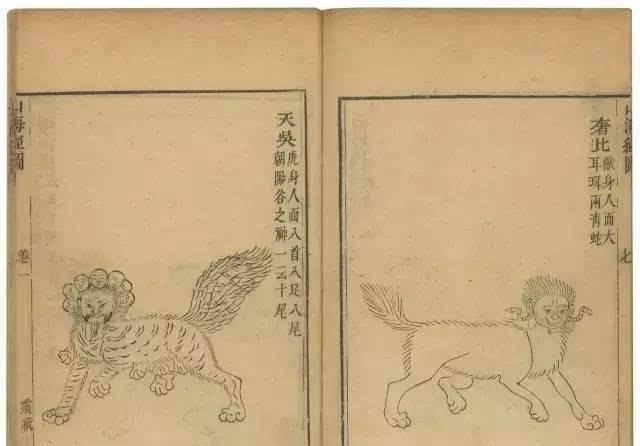 山海經圖
七
奢比
獸身人面大
耳珥兩青蛇
天吳
虎身人面八首八足八尾
朝陽谷之神一云十尾
山海經圖
卷一
靈祇